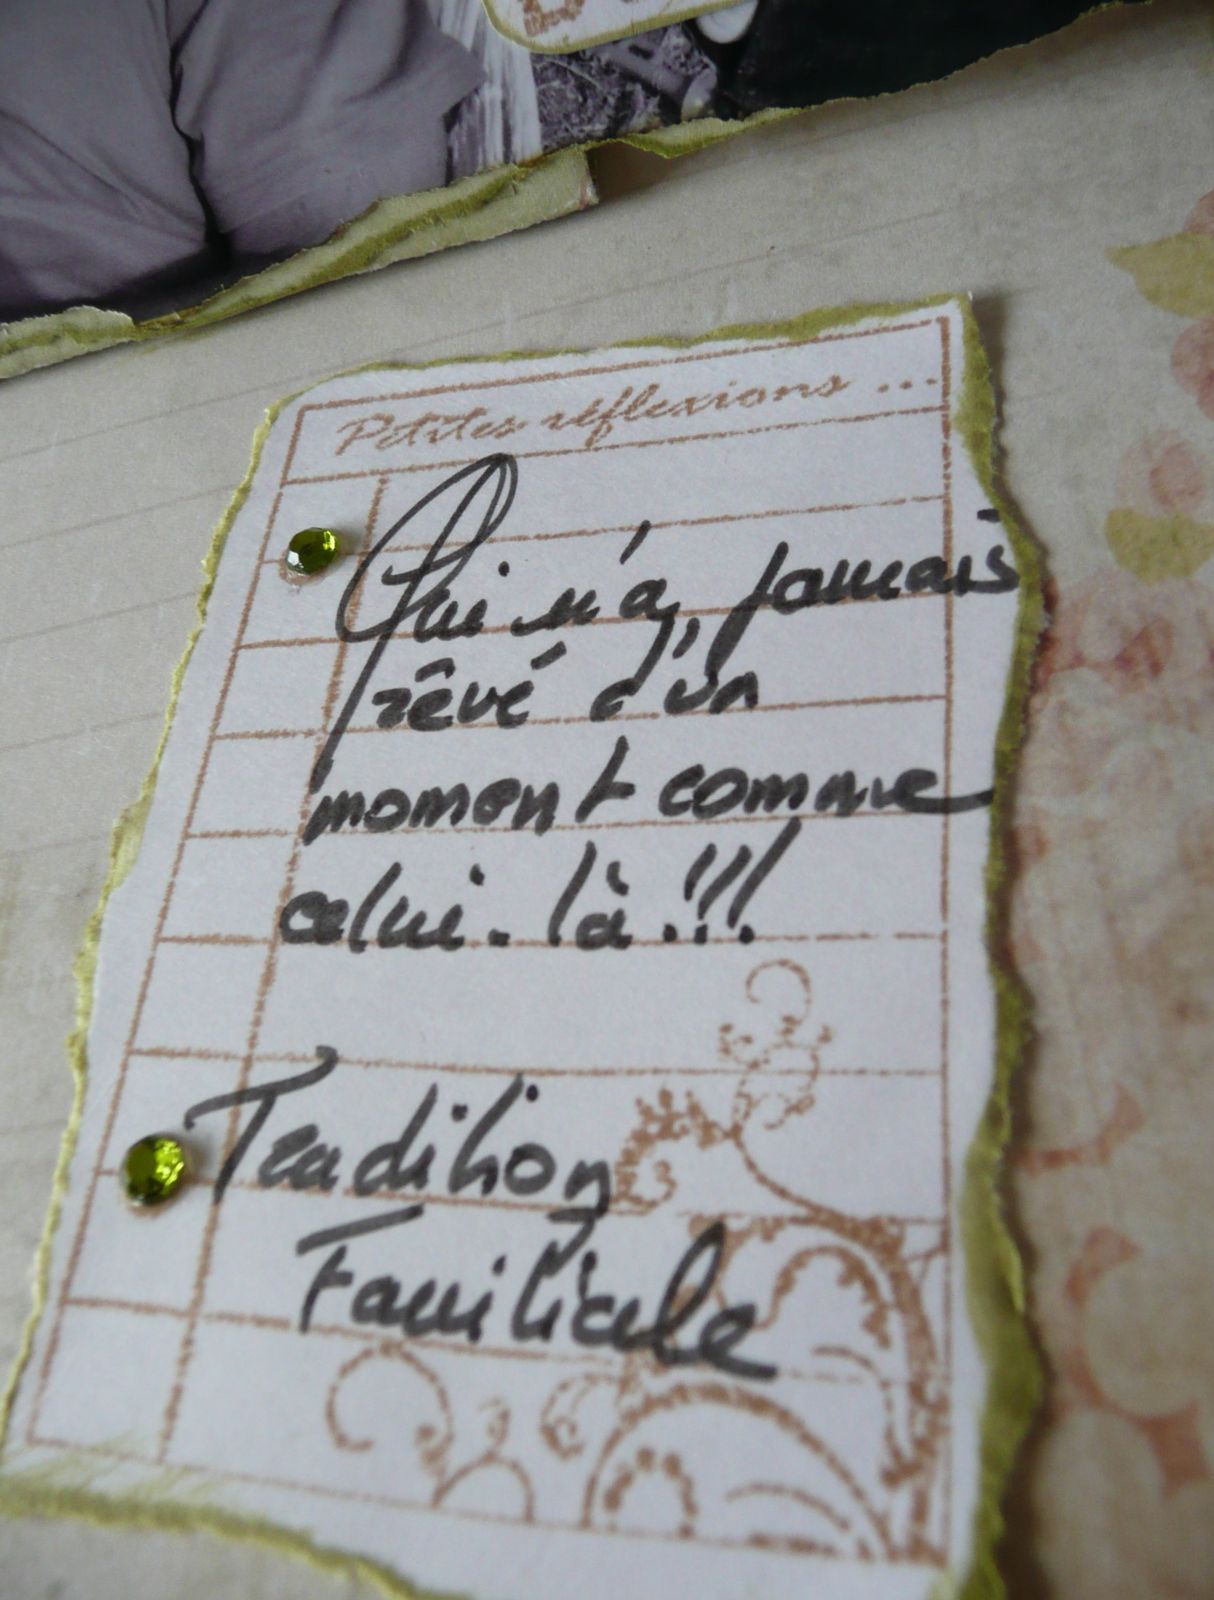 Petites réflexions ...
Qui n'a jamais
rêvé d'un
moment comme
celui-là !!!
Tradition
Familiale